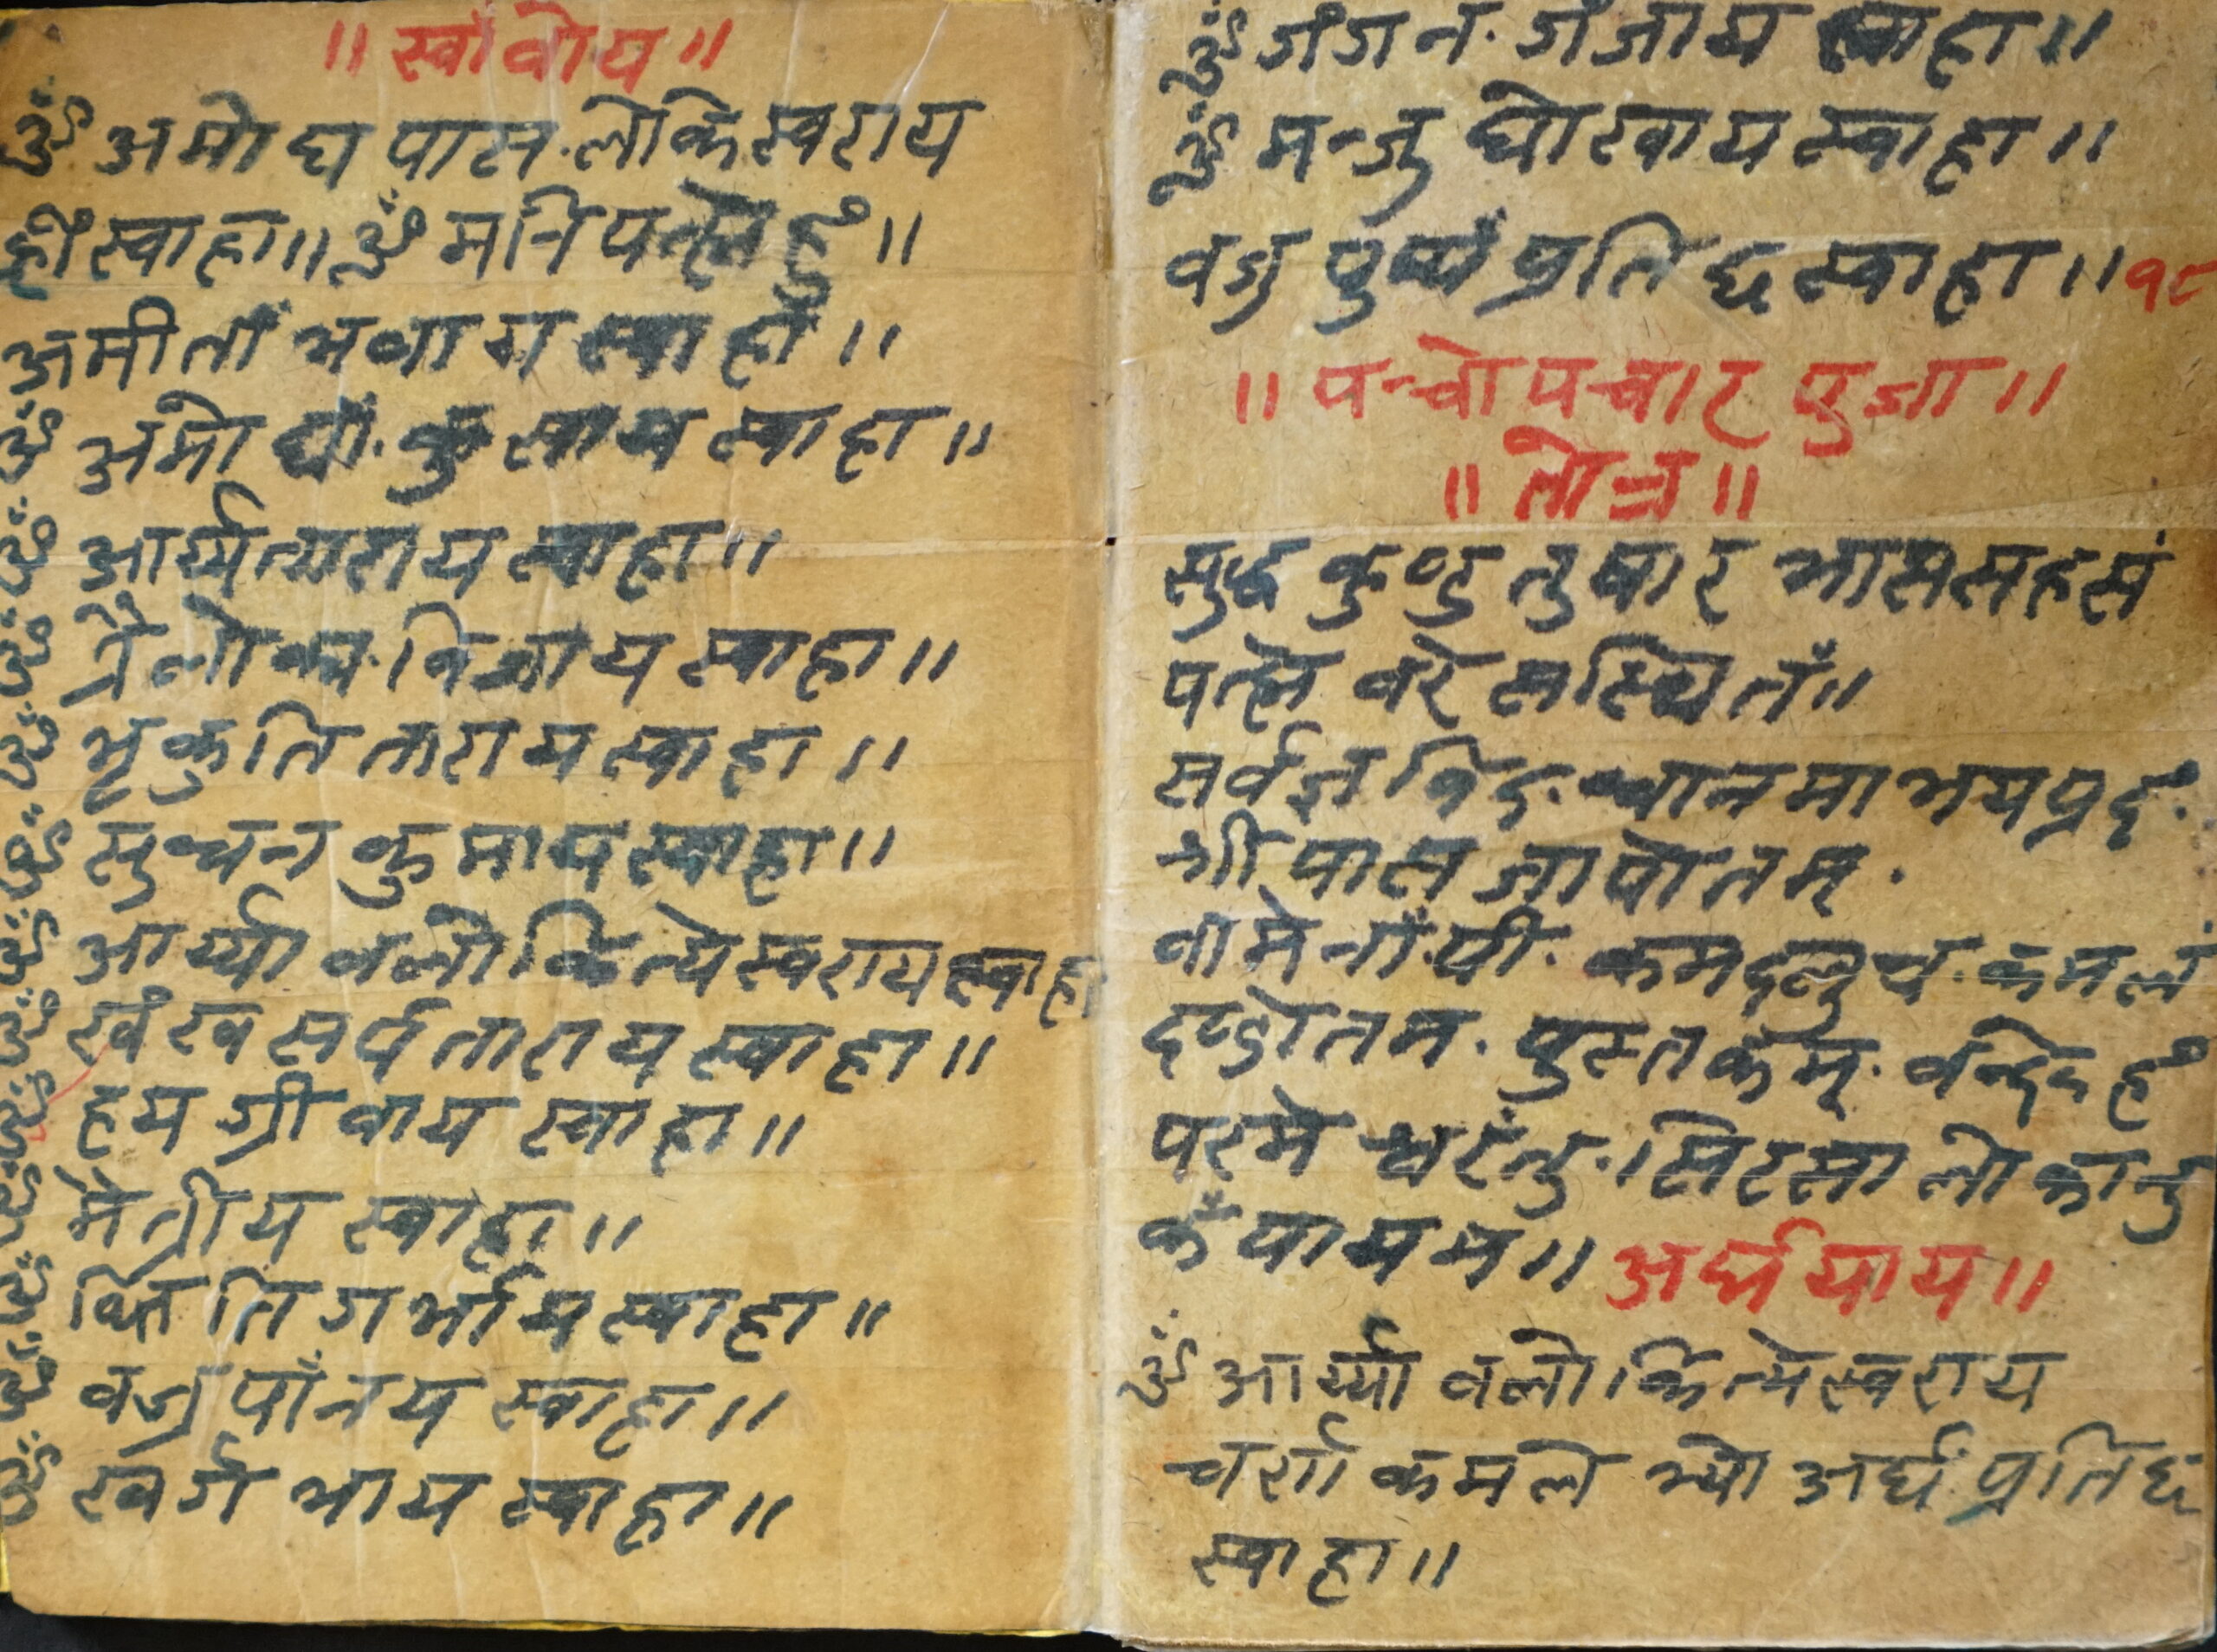 ॥ स्वांवोय ॥
ॐ अमोघ पास.लोकेस्वराय
ह्रीँ स्वाहा॥ ॐ मनिपत्मे हुँ॥
अमीताँ भवाय स्वाहाँ॥
ॐ अमो घाँ.कुसाय स्वाहा॥
ॐ आर्य्यत्यराय स्वाहा॥
ॐ त्रैलोक्य.विजाय स्वाहा॥
ॐ भृकुति ताराय स्वाहा॥
ॐ सुधन कुमाय स्वाहा॥
ॐ आर्य्या वलोकित्येस्वराय स्वाहा
ॐ खँ ख सर्व ताराय स्वाहा॥
ॐ हय ग्रीवाय स्वाहा॥
ॐ मैत्रीय स्वाहा॥
ॐ क्षिति गर्भाय स्वाहा॥
ॐ वज्र पाँनय स्वाहा॥
ॐ खर्ग भाय स्वाहा॥
ॐ गँगन.गँजाय स्वाहा॥
ॐ मन्जु घोखाय स्वाहा॥
वज्र पुष्पँ प्रतिछ स्वाहा॥ १८
॥ पन्चोपचार पुजा॥
॥ तोत्र॥
सुद्ध कुण्डु तुषार भाससहसं
पत्मे वरे सस्थितँ॥
सर्वज्ञ विद.धानमाभयप्रदँ.
श्री पास जापोतम्.
वामेनाँ.पी.कमदलु च.कमलं
दण्डोतम.पुस्तकँम्.वन्देहँ
परमेश्वरंतु.सिरसा लोकानु
कँपायम॥ अर्घ याय॥
ॐ आर्य्या वलोकित्येस्वराय
चर्ण कमले भ्यो अर्घं प्रतिछ
स्वाहा॥